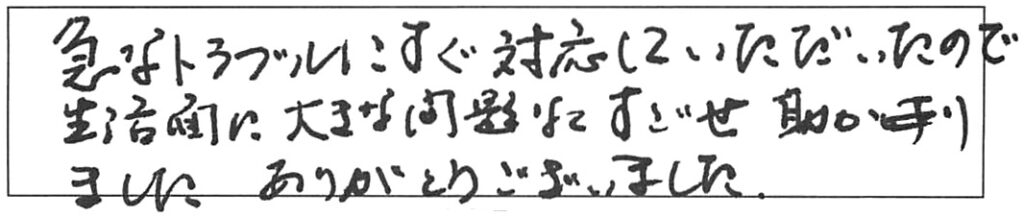 急なトラブルにすぐ対応していただいたので
生活面に大きな問題なくすごせ 助かり
ました ありがとうございました.